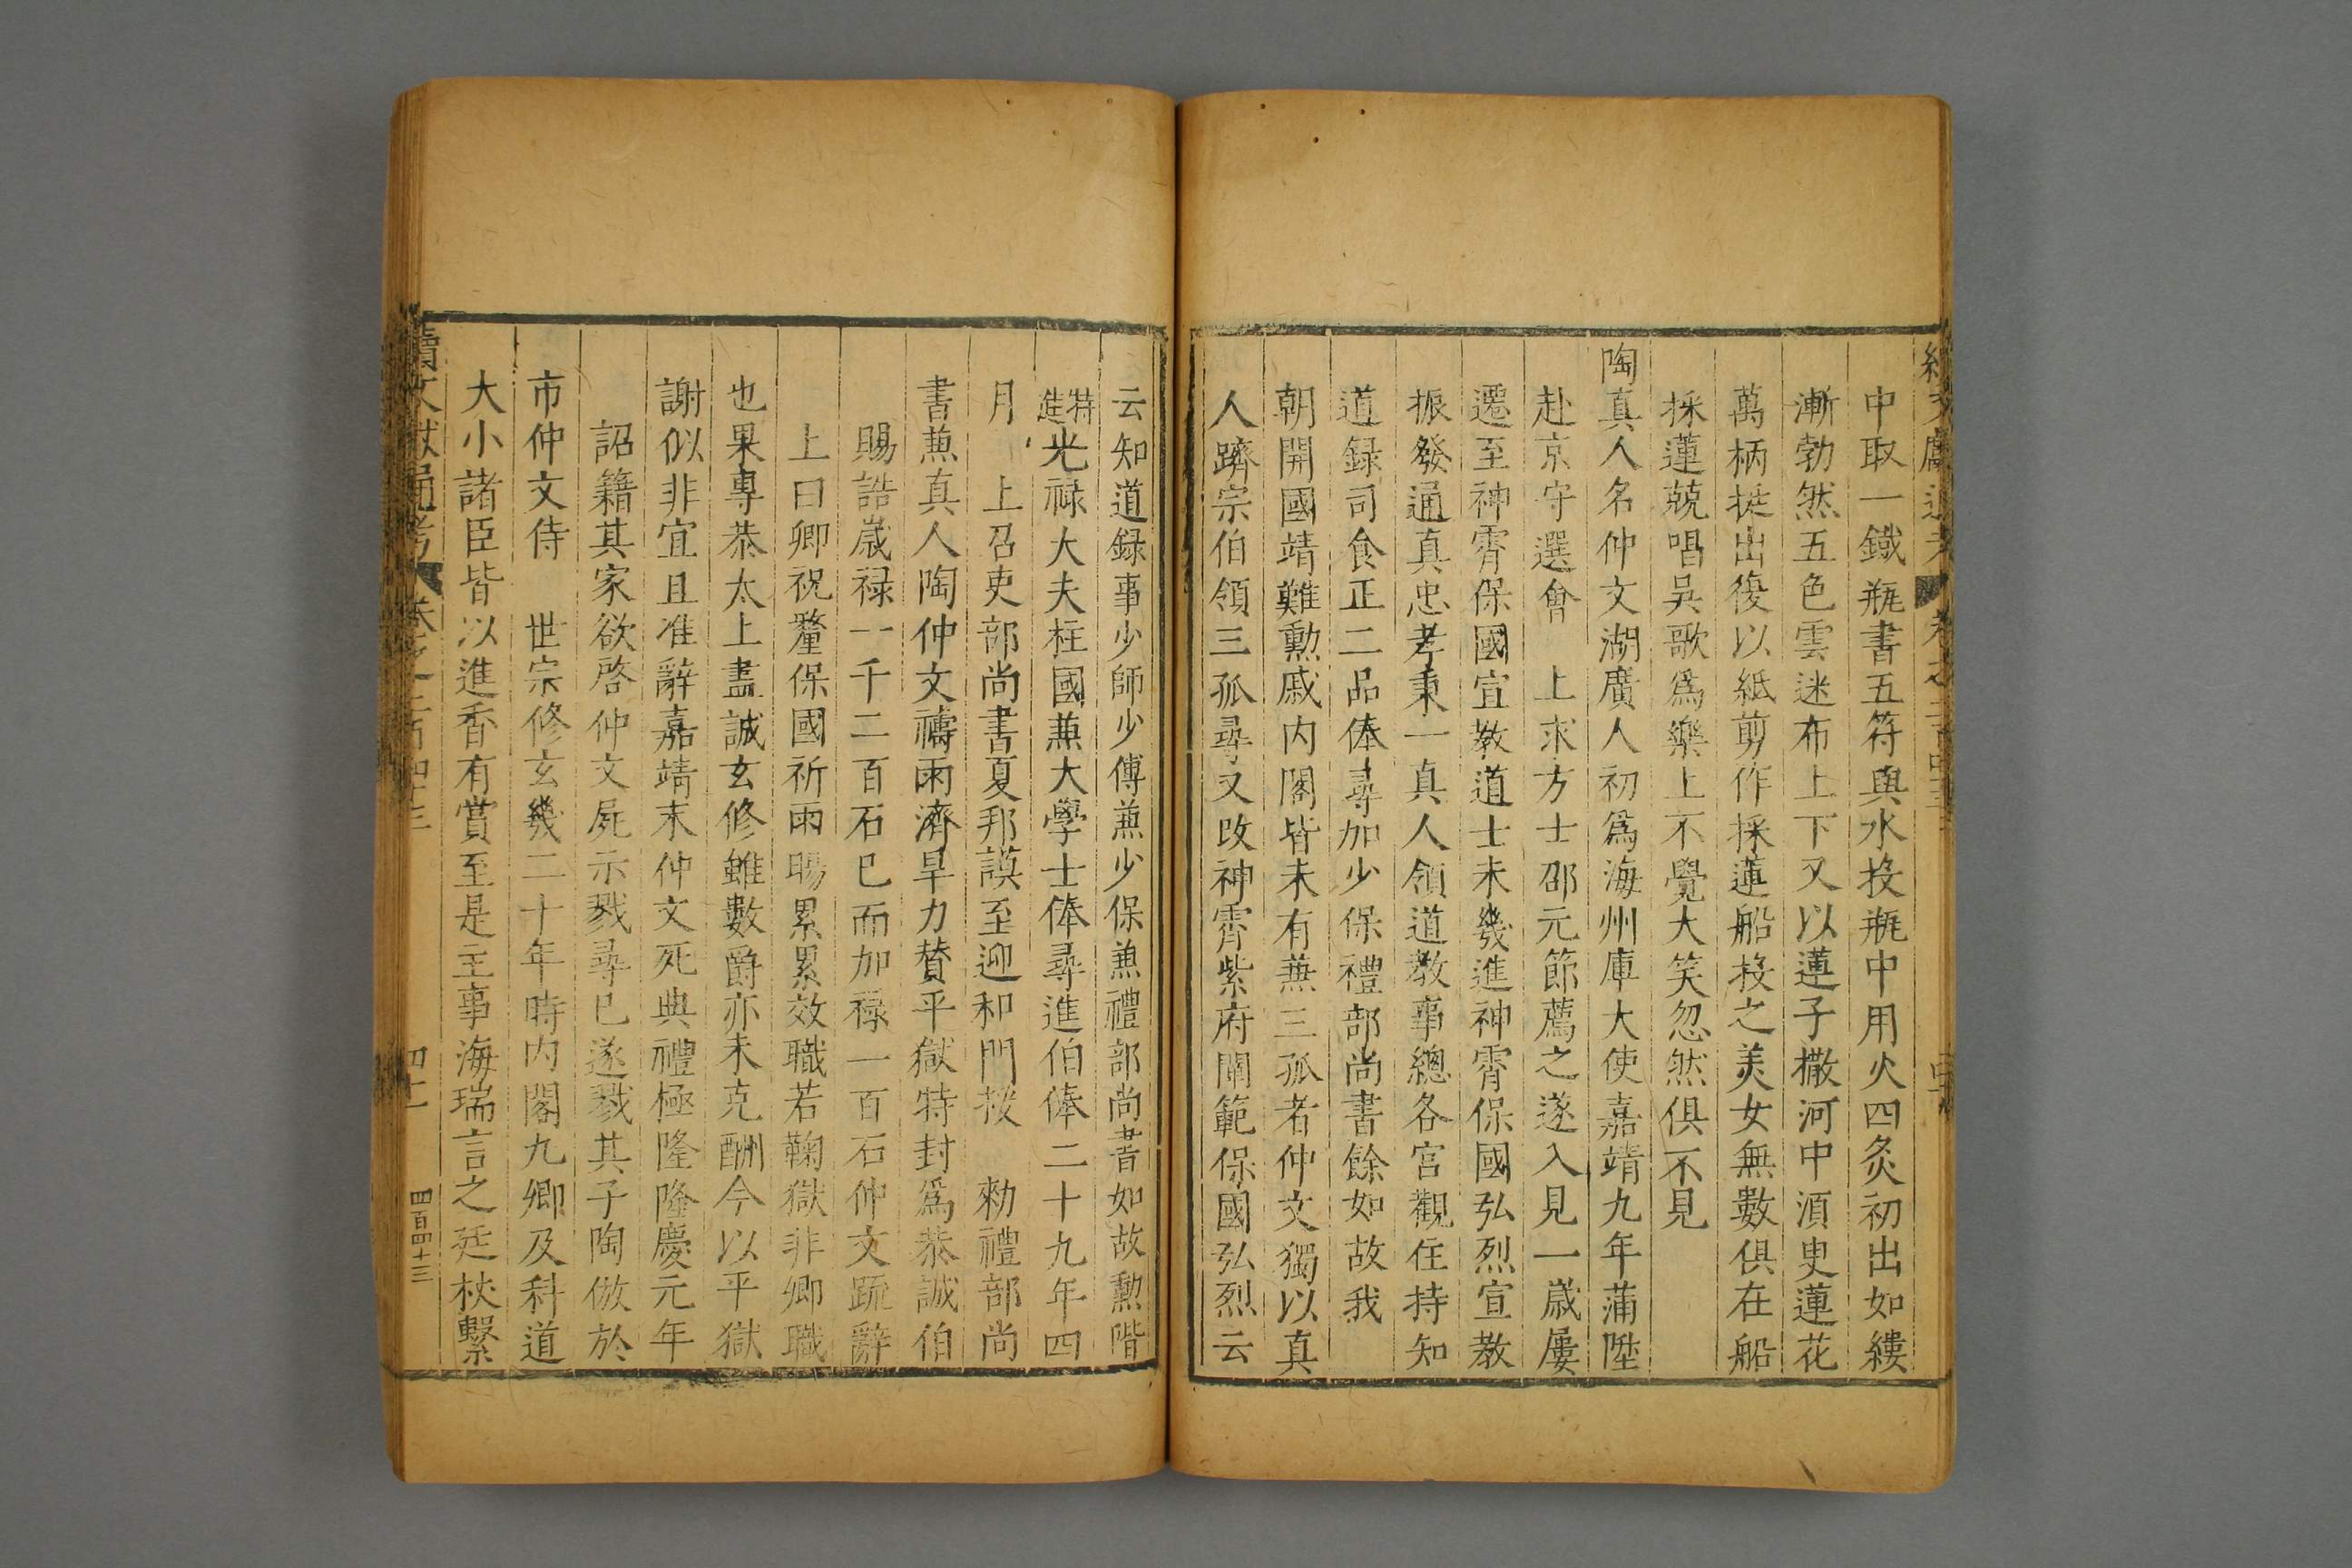 中取一鐵瓶書五符與水投瓶中用火四炙初出如縷
漸勃然五色雲迷布上下又以蓮子撒河中湏臾蓮花
萬柄挺出復以紙剪作採蓮船投之美女無數俱在船
採蓮兢唱吳歌爲樂上不覺大笑忽然俱不見
陶真人名仲文湖廣人初爲海州庫大使嘉靖九年蒲陞
赴京守選會　上求方士邵元節薦之遂入見一歲屢
遷至神霄保國宣教道士未幾進神霄保國弘烈宣教
振發通真忠孝秉一真人領道教事總各宮觀住持知
道録司食正二品俸尋加少保禮部尚書餘如故我
朝開國靖難勲戚内閣皆未有兼三孤者仲文獨以真
人躋宗伯領三孤尋又改神霄紫府闡範保國弘烈云
云知道録事少師少傅兼少保兼禮部尚書如故勲階
特進光禄大夫柱國兼大學士俸尋進伯俸二十九年四
月　上召吏部尚書夏邦謨至迎和門授　勑禮部尚
書兼真人陶仲文禱雨濟旱力賛平獄特封爲恭誠伯
賜誥歲禄一千二百石已而加禄一百石仲文疏辭
上曰卿祝釐保國祈雨暘累累效職若鞫獄非卿職
也果專恭太上盡誠玄修雖數爵亦未克酬今以平獄
謝似非宜且准辭嘉靖末仲文死典禮極隆隆慶元年
詔籍其家欲啓仲文屍示戮尋已遂戮其子陶倣於
市仲文侍　世宗修玄幾二十年時内閣九卿及科道
大小諸臣皆以進香有賞至是主事海瑞言之廷杖繫
續文獻通考　卷之二百四十三　四十一　四百四十三